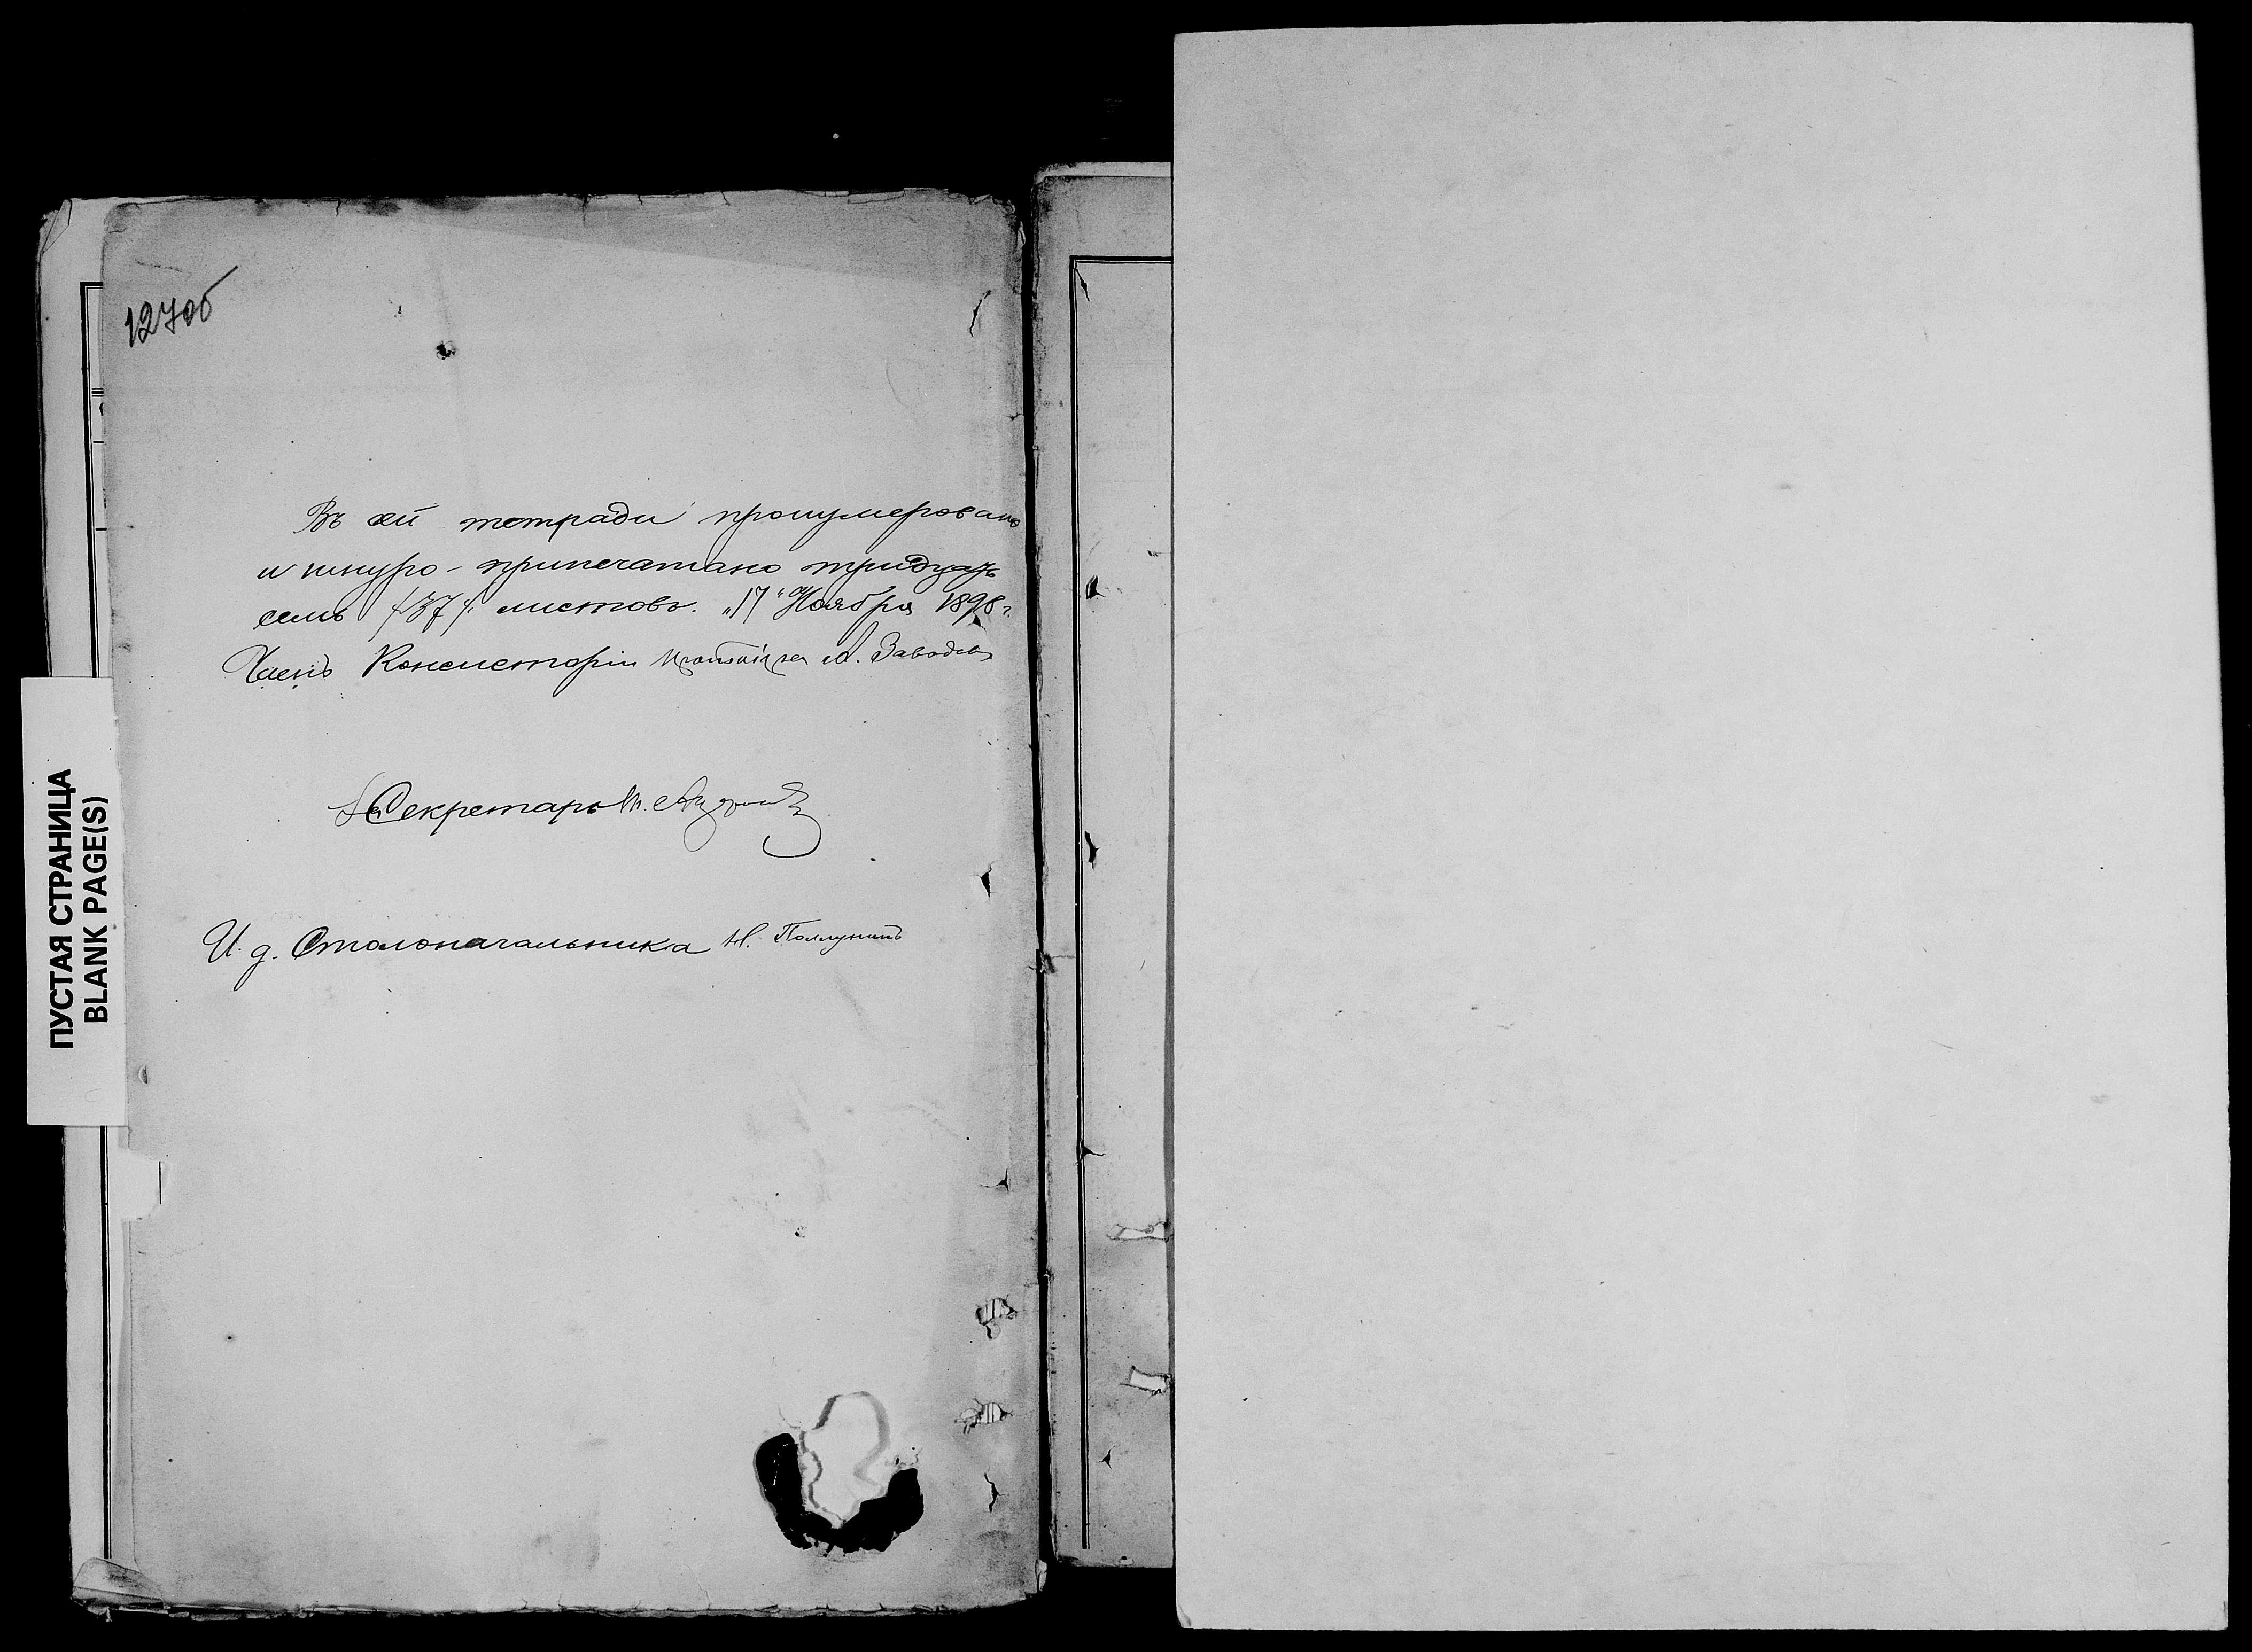 127об
Въ сей тетради пронумеровано
и шнуро-припечатано тридцать
семь /37/ листовъ. „17" Ноября 1898 г.
Членъ Консисторіи М. Заводск
Секретарь
И. д. Столоначальника Н. Полунинъ
ПУСТАЯ СТРАНИЦА
BLANK PAGE(S)